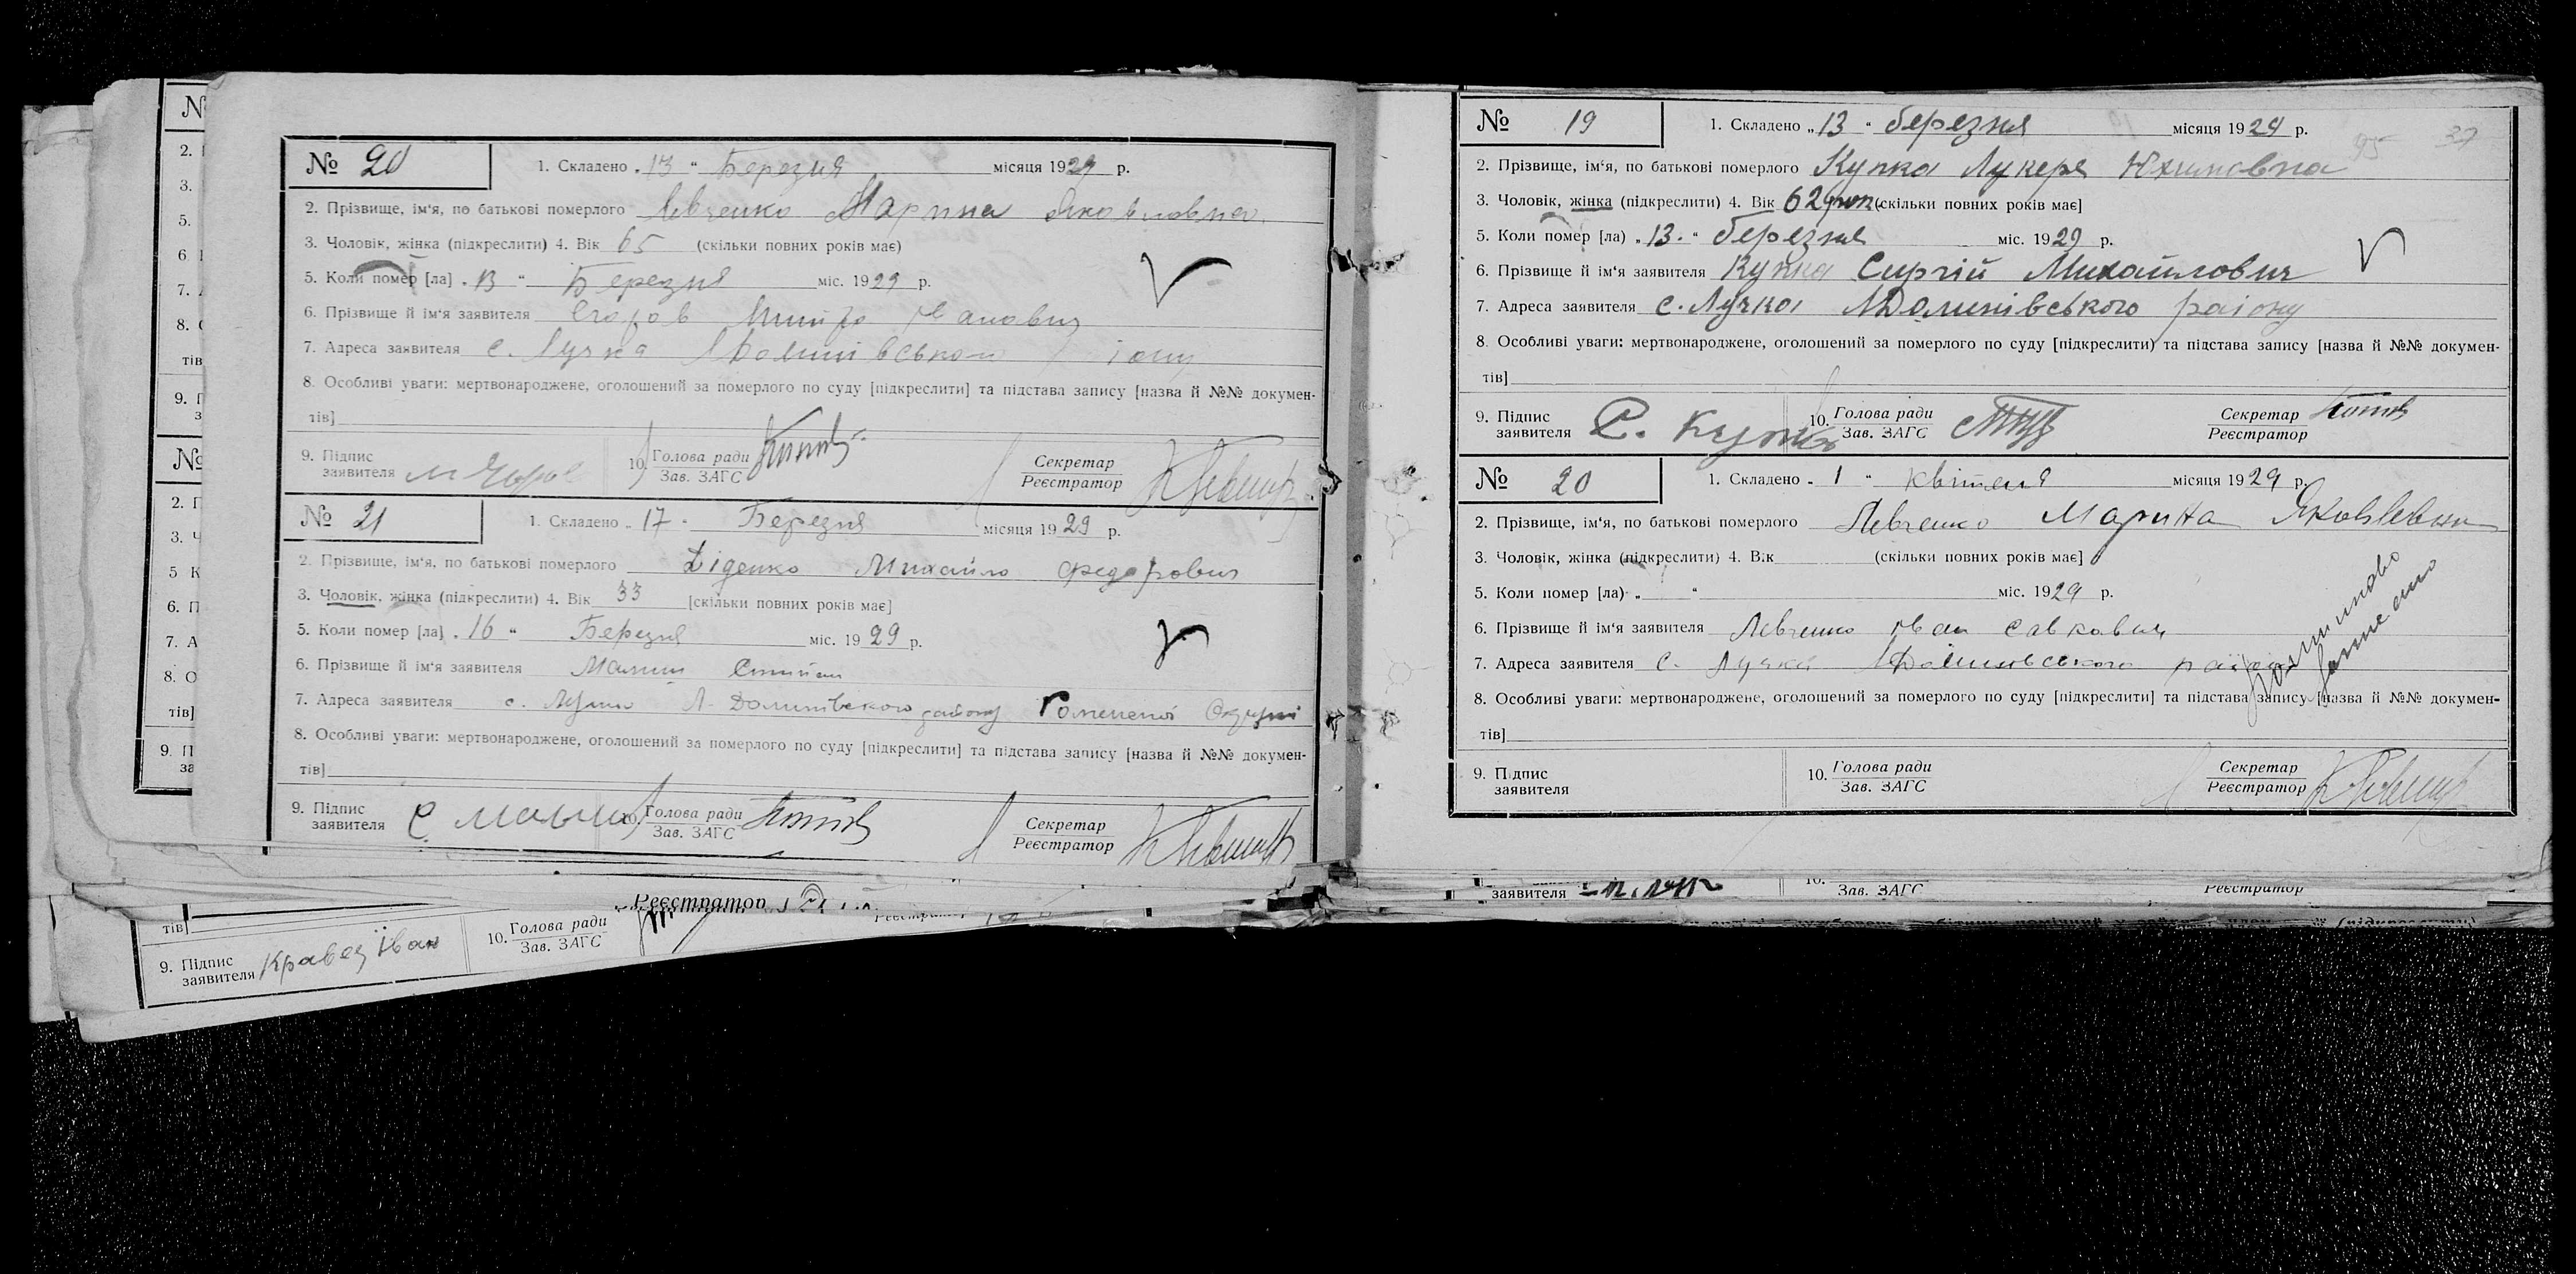 № 20 1. Складено „13“ Березня місяця 1929 р.
2. Прізвище, ім‘я, по батькові померлого Левченко Марина Яковловна
3. Чоловік, жінка (підкреслити) 4. Вік 65 (скільки повних років має)
5. Коли помер [ла] „13“ Березня міс. 1929 р.
6. Прізвище й ім‘я заявителя Єгоров Іванович
7. Адреса заявителя с. Лучка
8. Особливі уваги: мертвонароджене, оголошений за померлого по суду [підкреслити] та підстава запису [назва й №№ докумен-
тів]
9. Підпис заявителя 10. Голова ради Зав. ЗАГС Секретар Реєстратор
№ 21 1. Складено „17“ Березня місяця 1929 р.
2. Прізвище, ім‘я, по батькові померлого Діденко Михайло Федорович
3. Чоловік, жінка (підкреслити) 4. Вік 33 [скільки повних років має]
5. Коли помер [ла] „16“ Березня міс. 1929 р.
6. Прізвище й ім‘я заявителя
7. Адреса заявителя с. Л. Долинівського району Роменської Округи
8. Особливі уваги: мертвонароджене, оголошений за померлого по суду [підкреслити] та підстава запису [назва й №№ докумен-
тів]
9. Підпис заявителя 10. Голова ради Зав. ЗАГС Секретар Реєстратор
тів]
9. Підпис заявителя Кравец Іван 10. Голова ради Зав. ЗАГС
Реєстратор
№ 19 1. Складено „13“ березня місяця 1929 р.
95 37
2. Прізвище, ім‘я, по батькові померлого Купка Лукеря Юхимовна
3. Чоловік, жінка (підкреслити) 4. Вік 62 (скільки повних років має]
5. Коли помер [ла) „13.“ березня міс. 1929 р.
6. Прізвище й ім‘я заявителя Купка Сиргій Михайлович
7. Адреса заявителя с. Лучка Л-Долинівського району
8. Особливі уваги: мертвонароджене, оголошений за померлого по суду [підкреслити) та підстава запису [назва й №№ докумен-
тів]
9. Підпис заявителя С. Купка 10. Голова ради Зав. ЗАГС Секретар Реєстратор
№ 20 1. Складено „1“ квітеня місяця 1929 р.
2. Прізвище, ім‘я, по батькові померлого Левченко Марина Яковлевна
3. Чоловік, жінка (підкреслити) 4. Вік (скільки повних років має]
5. Коли помер [ла) „ “ міс. 1929 р.
6. Прізвище й ім‘я заявителя Левченко Іван Савкович
7. Адреса заявителя с. Лучка
помилково занесено
8. Особливі уваги: мертвонароджене, оголошений за померлого по суду [підкреслити] та підстава запису [назва й №№ докумен-
тів]
9. Підпис заявителя 10. Голова ради Зав. ЗАГС Секретар Реєстратор
заявителя 10. Зав. ЗАГС Реєстратор